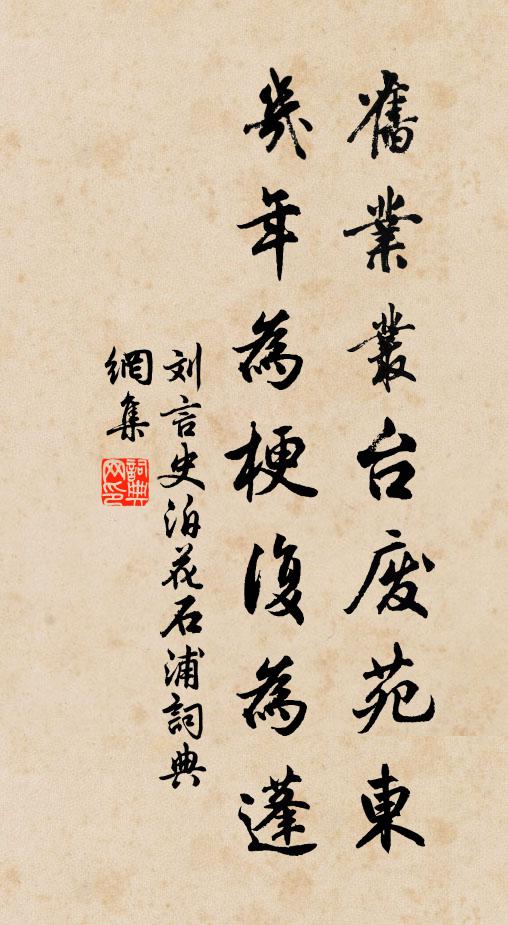 舊業叢台废苑東
幾年為梗復為蓬
刘言史泊花石浦詞典
網集
詞典网印